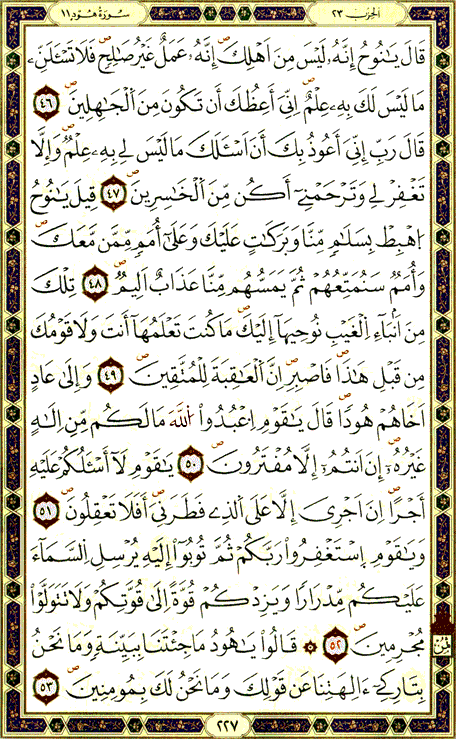 الحزب ٢٣
سُورَةُ هُود ١١
قَالَ يَٰنُوحُ إِنَّهُۥ لَيْسَ مِنَ اَهْلِكَ إِنَّهُۥ عَمَلٌ غَيْرُ صَٰلِحٍ فَلَا تَسْـَٔلَنِّۦ
مَا لَيْسَ لَكَ بِهِۦ عِلْمٌ اِنِّيَ أَعِظُكَ أَن تَكُونَ مِنَ اَلْجَٰهِلِينَ ٤٦
قَالَ رَبِّ إِنِّيَ أَعُوذُ بِكَ أَنَ اَسْـَٔلَكَ مَا لَيْسَ لِے بِهِۦ عِلْمٌ وَإِلَّا
تَغْفِرْ لِے وَتَرْحَمْنِےٓ أَكُن مِّنَ اَلْخَٰسِرِينَ ٤٧ قِيلَ يَٰنُوحُ
اُهْبِطْ بِسَلَٰمٍ مِّنَّا وَبَرَكَٰتٍ عَلَيْكَ وَعَلَىٰٓ أُمَمٍ مِّمَّن مَّعَكَ
وَأُمَمٌ سَنُمَتِّعُهُمْ ثُمَّ يَمَسُّهُم مِّنَّا عَذَابٌ اَلِيمٌ ٤٨ تِلْكَ
مِنَ اَنۢبَآءِ اِلْغَيْبِ نُوحِيهَآ إِلَيْكَ مَا كُنتَ تَعْلَمُهَآ أَنتَ وَلَا قَوْمُكَ
مِن قَبْلِ هَٰذَا فَاصْبِرِ اِنَّ اَلْعَٰقِبَةَ لِلْمُتَّقِينَ ٤٩ وَإِلَىٰ عَادٍ
اَخَاهُمْ هُودًا قَالَ يَٰقَوْمِ اِعْبُدُواْ اُللَّهَ مَا لَكُم مِّنِ اِلَٰهٍ
غَيْرُهُۥٓ إِنَ اَنتُمُۥٓ إِلَّا مُفْتَرُونَ ٥٠ يَٰقَوْمِ لَآ أَسْـَٔلُكُمْ عَلَيْهِ
أَجْرًا اِنَ اَجْرِيَ إِلَّا عَلَى اَلذِے فَطَرَنِيَ أَفَلَا تَعْقِلُونَ ٥١
وَيَٰقَوْمِ اِسْتَغْفِرُواْ رَبَّكُمْ ثُمَّ تُوبُوٓاْ إِلَيْهِ يُرْسِلِ اِلسَّمَآءَ
عَلَيْكُم مِّدْرَارًا وَيَزِدْكُمْ قُوَّةً اِلَىٰ قُوَّتِكُمْ وَلَا تَتَوَلَّوْاْ
مُجْرِمِينَ ٥٢ ۞ قَالُواْ يَٰهُودُ مَا جِئْتَنَا بِبَيِّنَةٍ وَمَا نَحْنُ
بِتَارِكِےٓ ءَالِهَتِنَا عَن قَوْلِكَ وَمَا نَحْنُ لَكَ بِمُومِنِينَ ٥٣
ثمن
٢٢٧